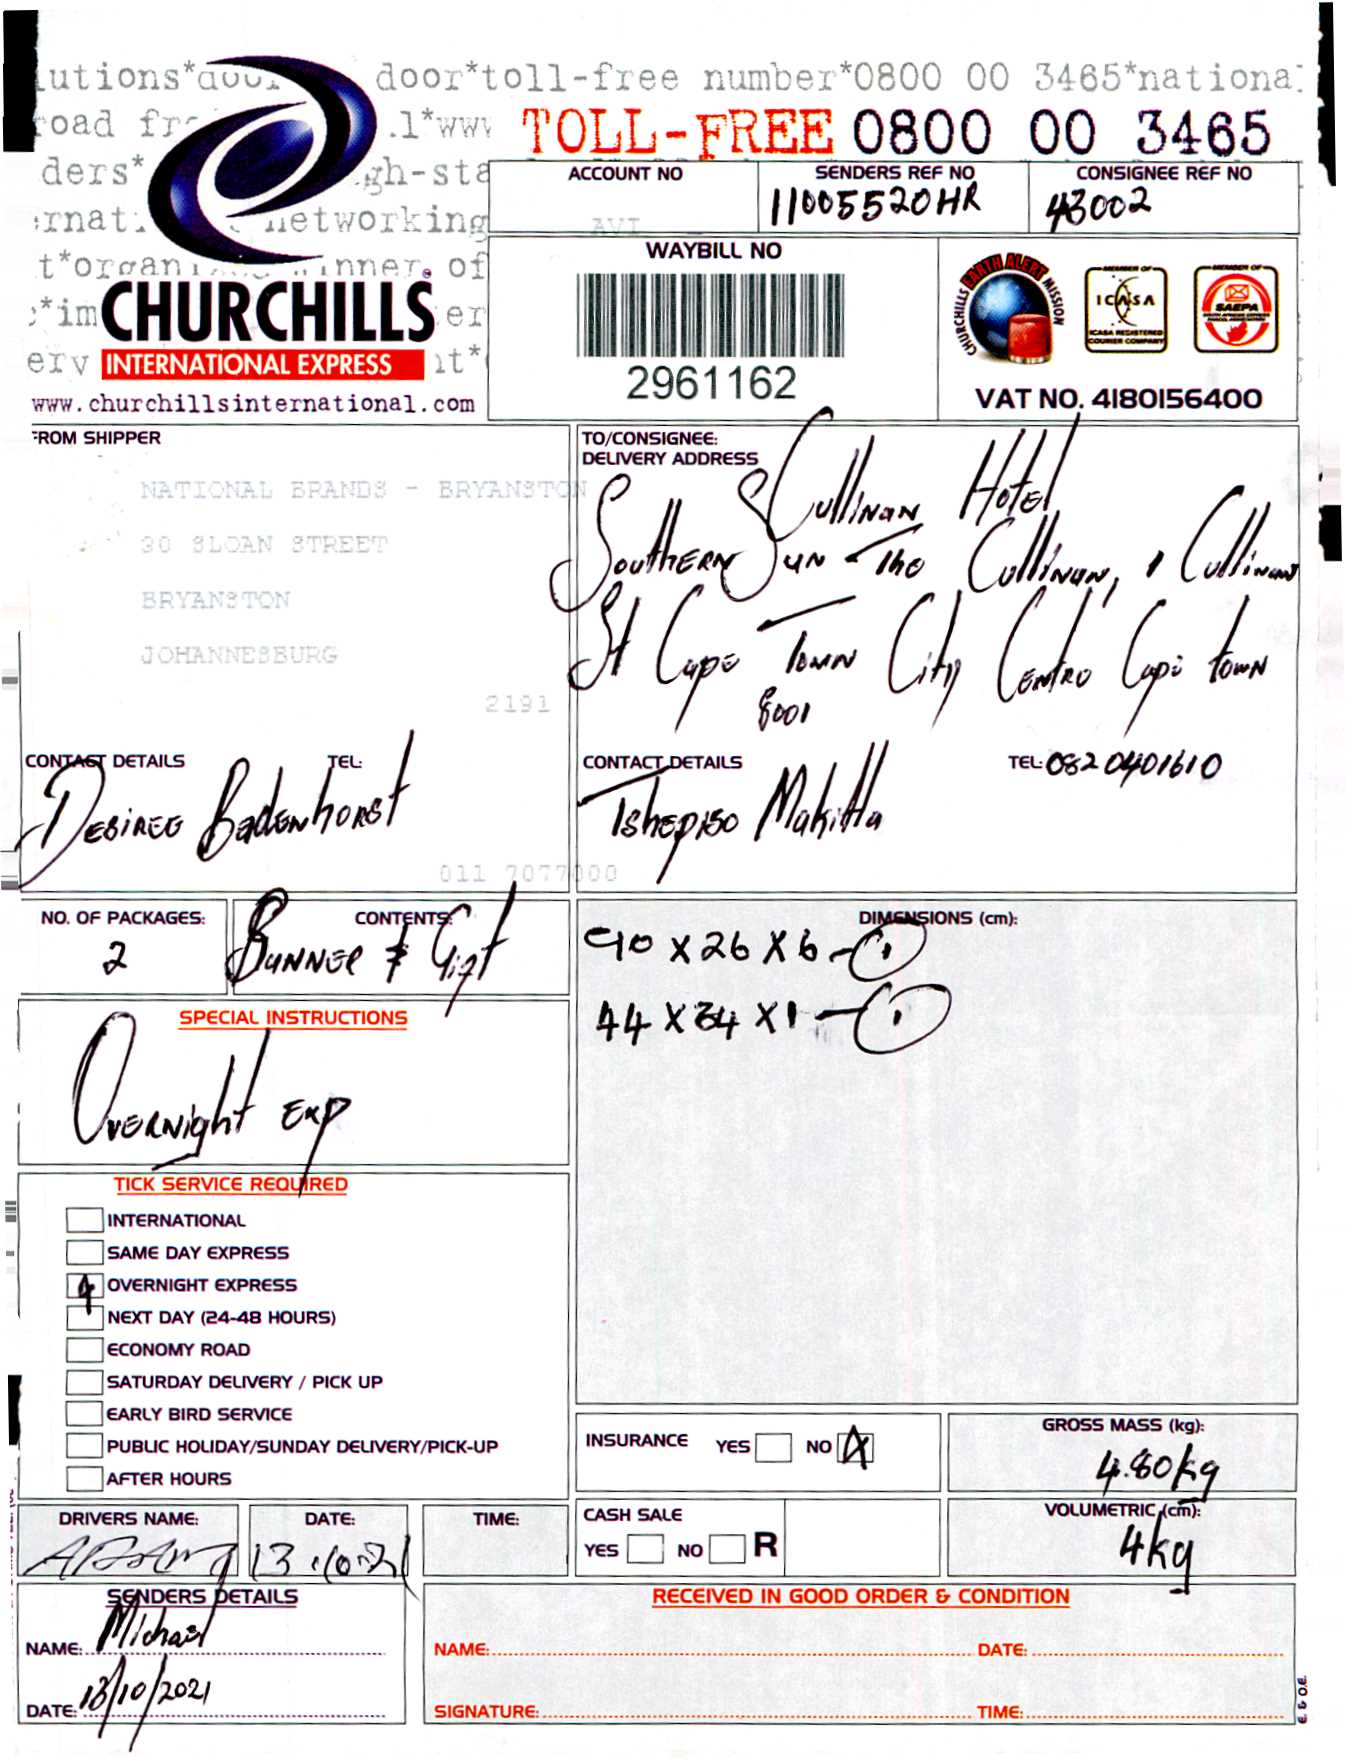 lutions*door door*toll-free number*0800 00 3465*national
road fr .l*www
TOLL-FREE 0800 00 3465
ders* gh-sta
ernat networking
t*organ winner of
*im er
ery nt*
CHURCHILLS
INTERNATIONAL EXPRESS
www.churchillsinternational.com
ACCOUNT NO
AVI
SENDERS REF NO
11005520HR
CONSIGNEE REF NO
43002
WAYBILL NO
2961162
CHURCHILLS EARTH ALERT MISSION
MEMBER OF
ICASA
ICASA REGISTERED
COURIER COMPANY
MEMBER OF
SAEPA
VAT NO. 4180156400
FROM SHIPPER
NATIONAL BRANDS - BRYANSTON
30 SLOAN STREET
BRYANSTON
JOHANNESBURG
2191
CONTACT DETAILS TEL:
Desiree Badenhorst
011 7077000
TO/CONSIGNEE:
DELIVERY ADDRESS
Cullinan Hotel
Southern Sun - The Cullinan, 1 Cullinan
St Cape Town City Centre Cape Town
8001
CONTACT DETAILS TEL: 0820401610
Tshepiso Makitla
NO. OF PACKAGES:
2
CONTENTS:
Banner & Gift
DIMENSIONS (cm):
90 X 26 X 6 - 1
44 X 34 X 1 - 1
SPECIAL INSTRUCTIONS
Overnight Exp
TICK SERVICE REQUIRED
INTERNATIONAL
SAME DAY EXPRESS
OVERNIGHT EXPRESS
NEXT DAY (24-48 HOURS)
ECONOMY ROAD
SATURDAY DELIVERY / PICK UP
EARLY BIRD SERVICE
PUBLIC HOLIDAY/SUNDAY DELIVERY/PICK-UP
AFTER HOURS
INSURANCE YES NO
GROSS MASS (kg):
4.80kg
DRIVERS NAME:
DATE:
13.10.21
TIME:
CASH SALE
YES NO R
VOLUMETRIC (cm):
4kg
SENDERS DETAILS
NAME: Michael
DATE: 13/10/2021
RECEIVED IN GOOD ORDER & CONDITION
NAME: DATE:
SIGNATURE: TIME:
E. & O.E.